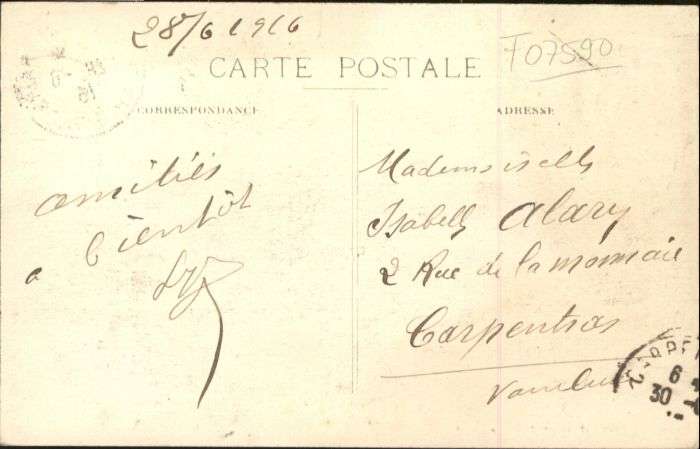 28/6 1916
F07590
CARTE POSTALE
CORRESPONDANCE
ADRESSE
amitiés
a bientôt
Mademoiselle
Isabelle Alary
2 Rue de la monnaie
Carpentras
Vaucluse
6
30